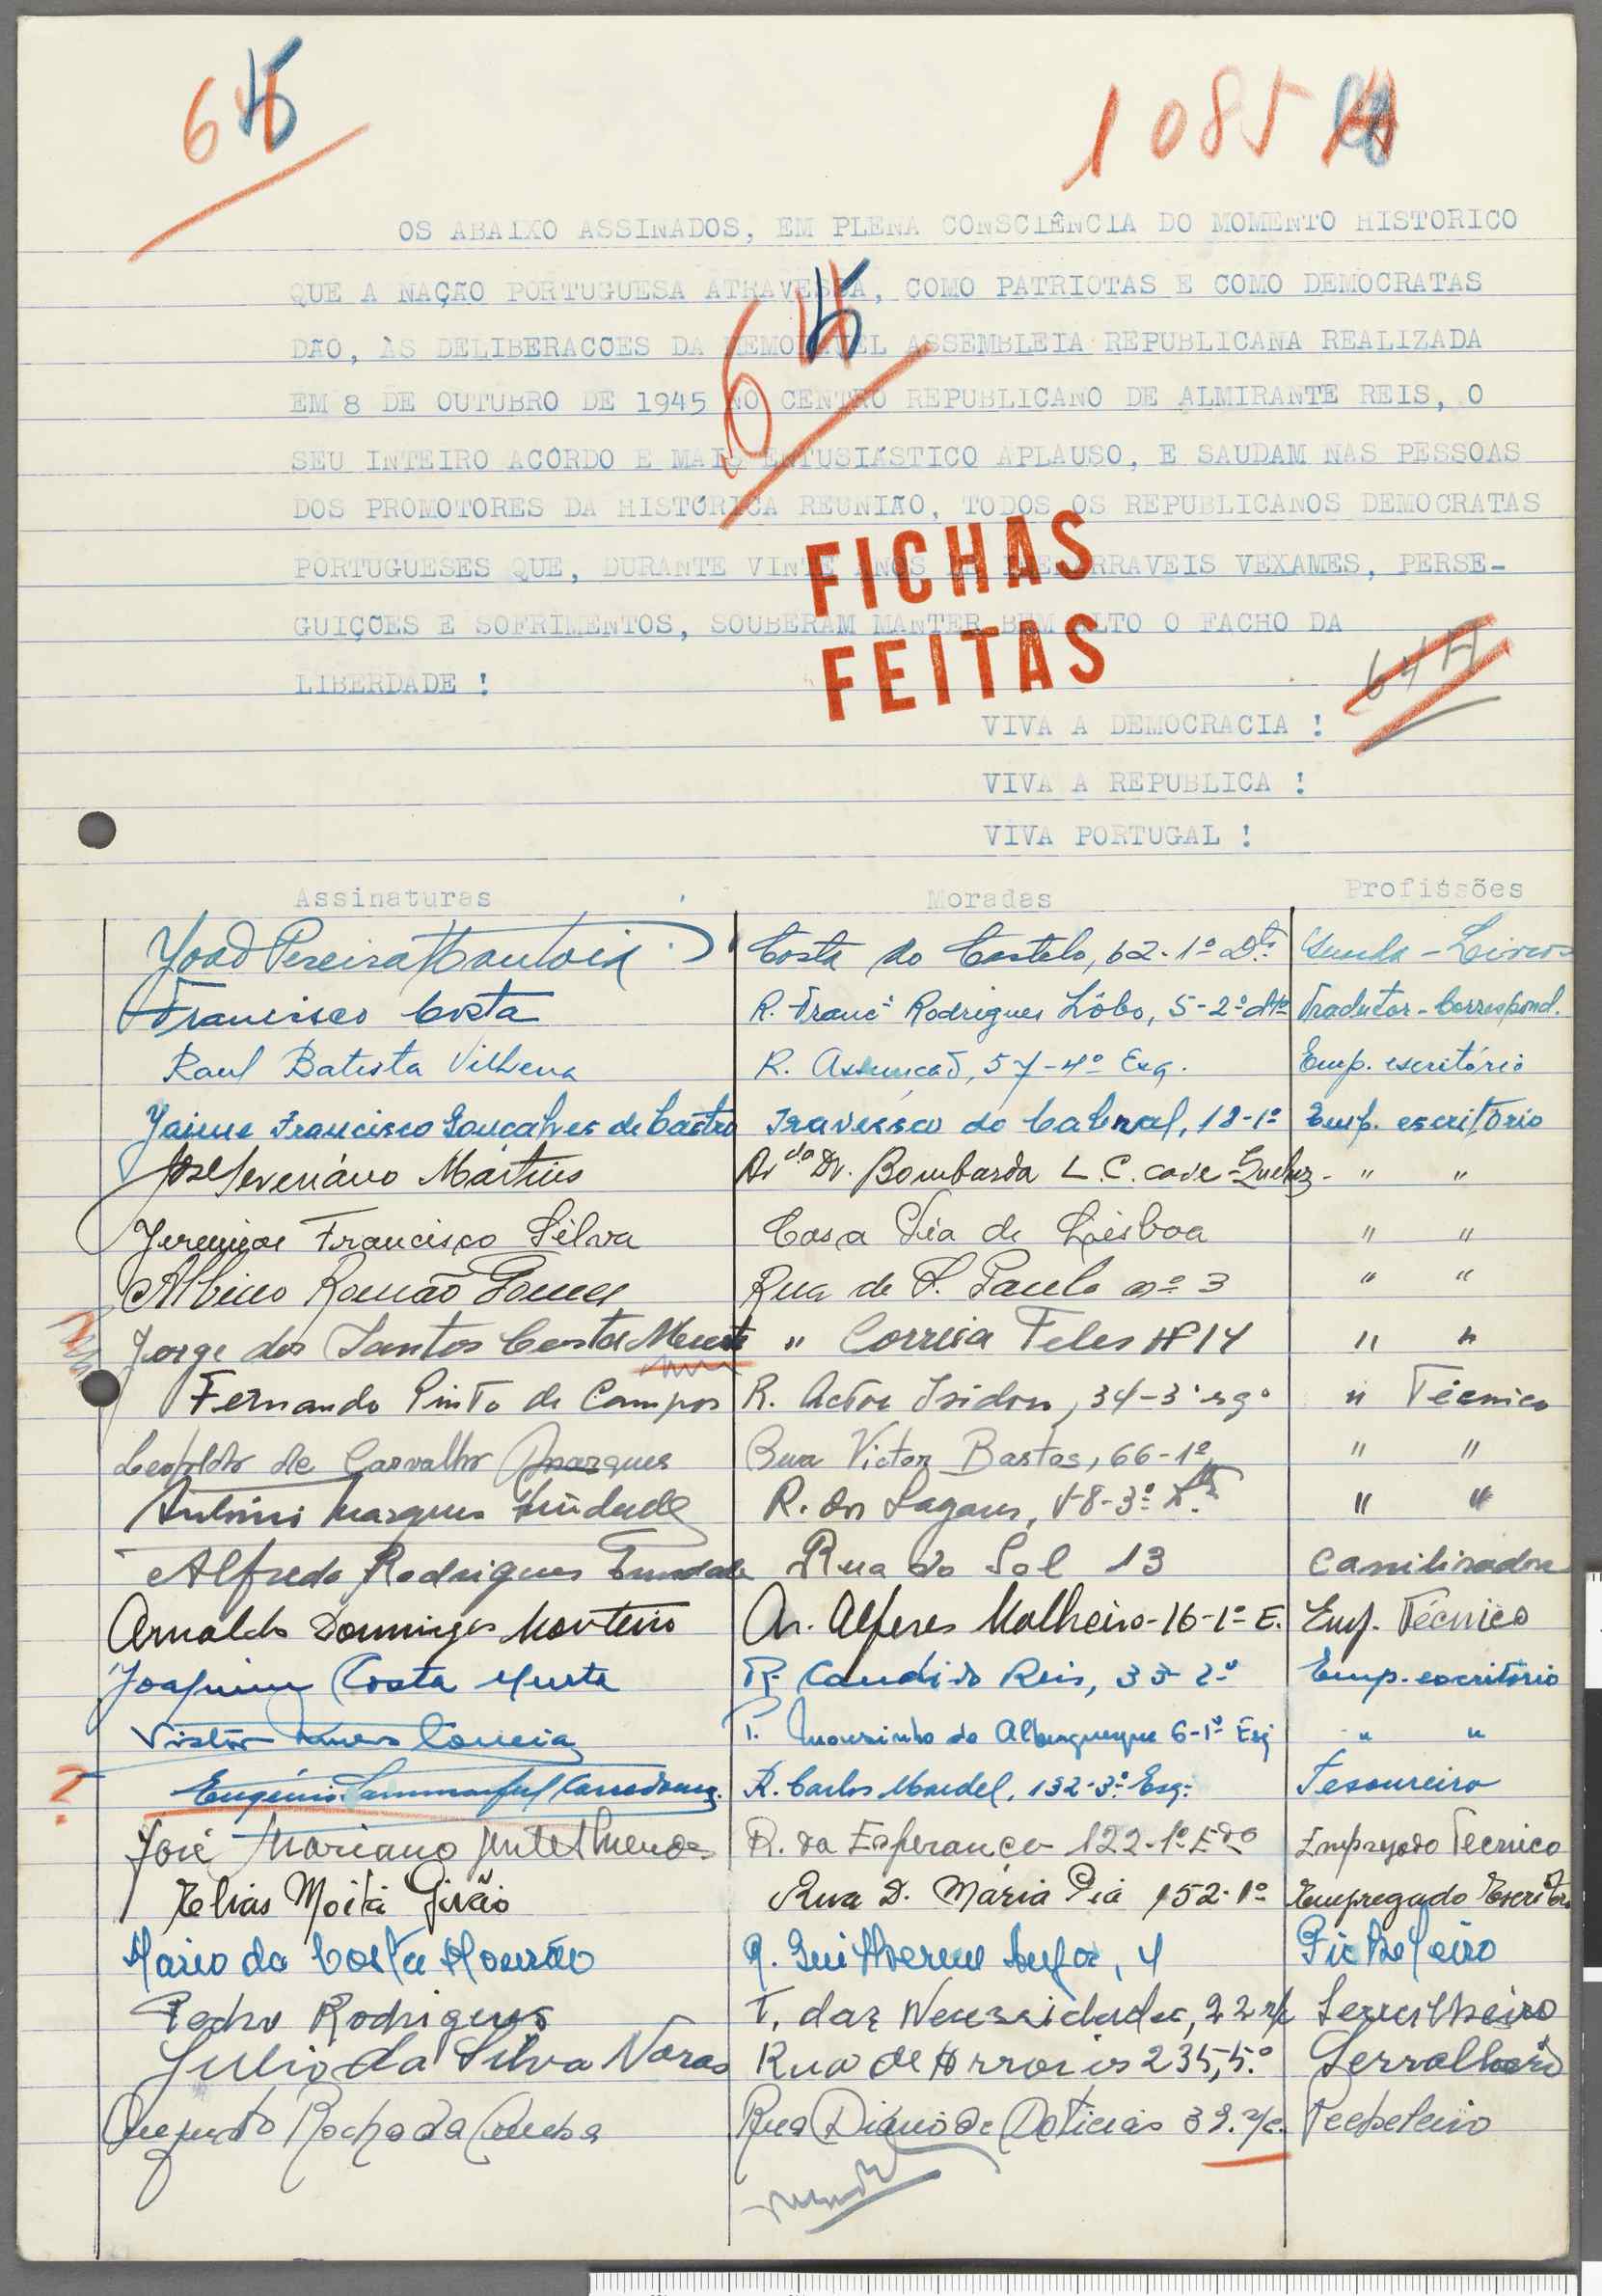 645
1085
OS ABAIXO ASSINADOS, EM PLENA CONSCIÊNCIA DO MOMENTO HISTORICO
QUE A NAÇÃO PORTUGUESA ATRAVESSA, COMO PATRIOTAS E COMO DEMOCRATAS
DÃO, ÀS DELIBERACOES DA MEMORAVEL ASSEMBLEIA REPUBLICANA REALIZADA
EM 8 DE OUTUBRO DE 1945 NO CENTRO REPUBLICANO DE ALMIRANTE REIS, O
SEU INTEIRO ACÔRDO E MAIS ENTUSIÁSTICO APLAUSO, E SAUDAM NAS PESSOAS
DOS PROMOTORES DA HISTÓRICA REUNIÃO, TODOS OS REPUBLICANOS DEMOCRATAS
PORTUGUESES QUE, DURANTE VINTE ANOS DE INENARRAVEIS VEXAMES, PERSE-
GUIÇÕES E SOFRIMENTOS, SOUBERAM MANTER BEM ALTO O FACHO DA
LIBERDADE !
FICHAS
FEITAS
VIVA A DEMOCRACIA !
VIVA A REPUBLICA !
VIVA PORTUGAL !
Assinaturas Moradas Profissões
João Pereira Costa do Castelo, 62-1º Dtº Guarda-Livros
Francisco Costa R. Franc.º Rodrigues Lôbo, 5-2º dtº Tradutor-Correspond.
Raul Batista Vilhena R. Assunção, 57-4º Esq. Emp. escritório
Jaime Francisco Gonçalves de Castro Travessa do Cabral, 18-1º Emp. escritório
José Severiano Martins Av da Dr. Bombarda L.C. cave-Queluz- " "
Jeremias Francisco Silva Casa Pia de Lisboa " "
Albino Romão Gomes Rua de S. Paulo nº 3 " "
Jorge dos Santos Costa " Correia Teles Nº 14 " "
Fernando Pinto de Campos R. Actor Isidoro, 34-3º esqº " Técnico
Leopoldo de Carvalho Marques Rua Victor Bastos, 66-1º " "
António Marques Trindade R. dos Lagares, 58-3º Dtº " "
Alfredo Rodrigues Trindade Rua do Sol 13
Arnaldo Domingos Monteiro Av. Alferes Malheiro-16-1º E. Emp. Técnico
Joaquim Costa Murta R. Candido Reis, 33-2º Emp. escritório
Correia P. Mousinho de Albuquerque 6-1º Esq " "
Eugénio R. Carlos Mardel, 132-3º Esq. Tesoureiro
José Mariano R. da Esperança 122-1º Edo Empregado Tecnico
Elias Moita Girão Rua D. Maria Pia 152-1º Empregado Escritório
Mario da Costa Mourão R. Guilherme Anjos, 4 Picheleiro
Pedro Rodrigues T. das Necessidades, 22 r/c Serralheiro
Julio da Silva Naras Rua de Arroios 235,5.º Serralheiro
Augusto Rocha da Cunha Rua Diário de Noticias 39. r/c. Picheleiro